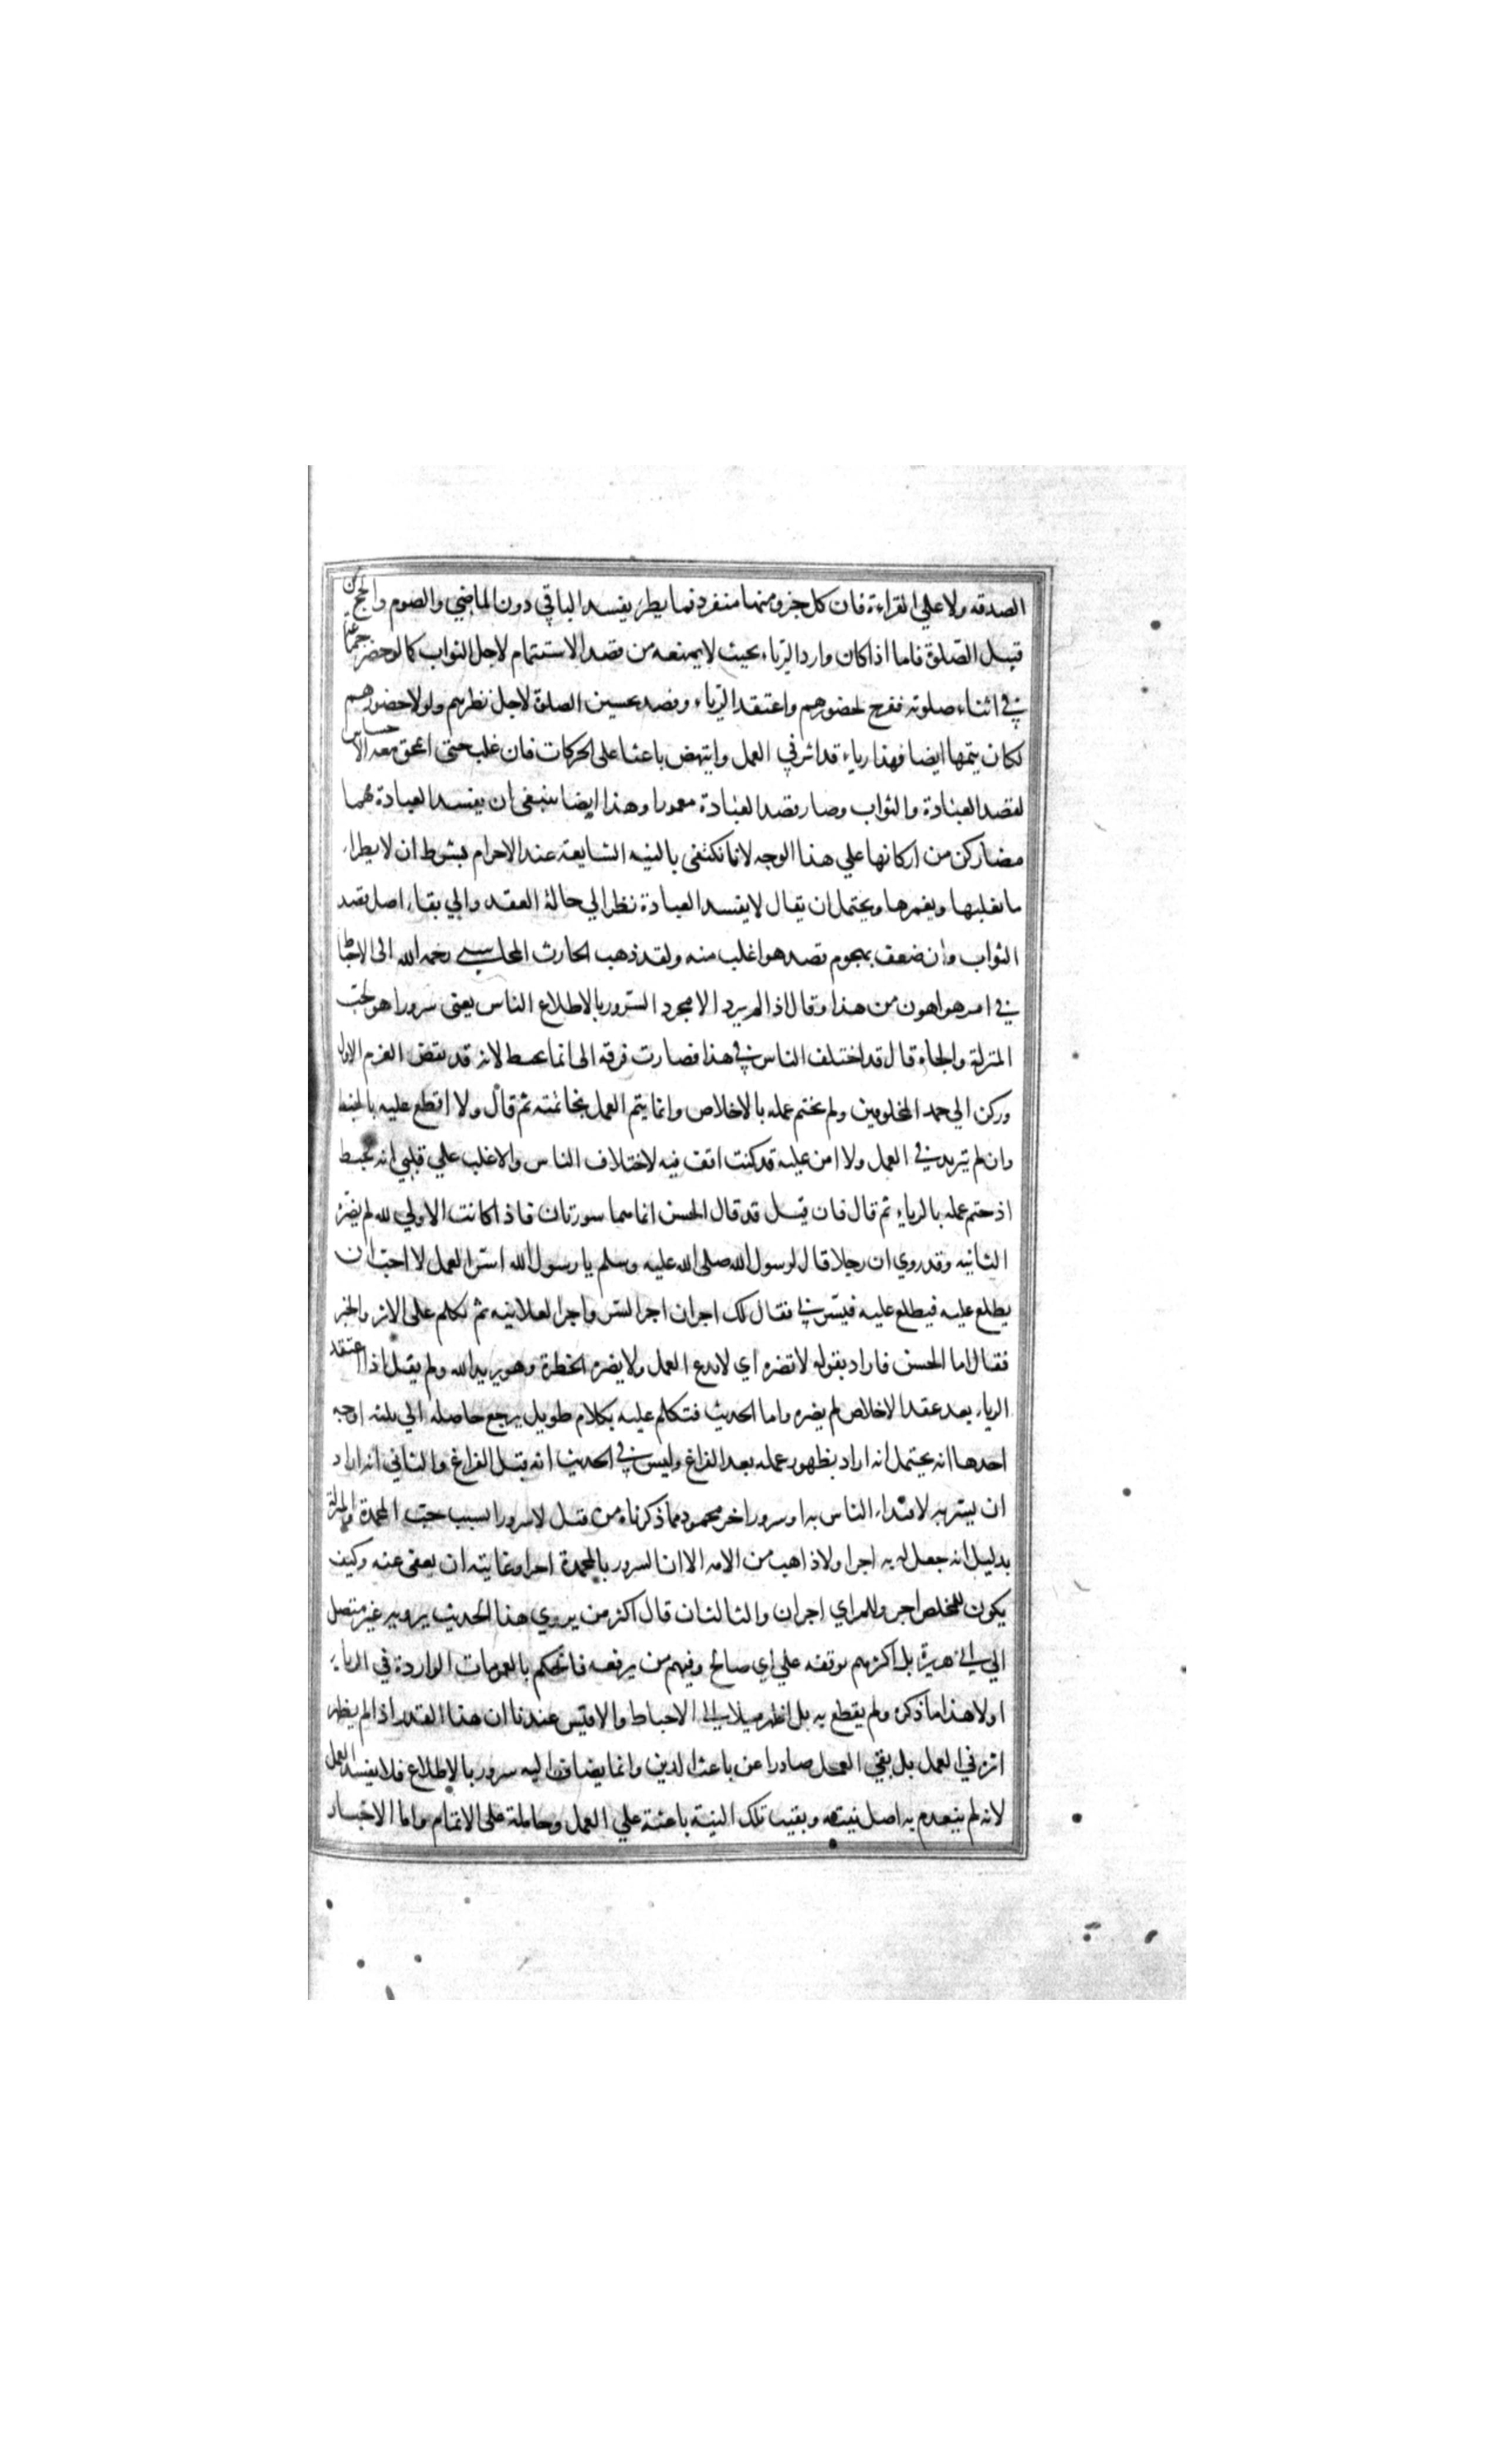 الصدقه ولا علي القراءة فان كل جزو منها منفرد فما يطر يفسد الباقي دون الماضي والصوم والحج من
قبيل الصلوة فاما اذا كان وارد الرياء بحيث لا يمنعه من قصد الاستتمام لاجل الثواب كما لو حضر جماعة
في اثناء صلوته ففرح لحضورهم واعتقد الرياء وقصد تحسين الصلوة لاجل نظرهم ولولا حضورهم
لكان يتمها ايضا فهذا رياء قد اثر في العمل وانتهض باعثا على الحركات فان غلب حتى انمحق معه الاحساس
لقصد العبادة والثواب وصار قصد العبادة مغمورا وهذا ايضا ينبغى ان يفسد العبادة مهما
مضا ركن من اركانها علي هذا الوجه لانا نكتفى بالنيه السابعة عند الاحرام بشرط ان لا يطراء
ما يغلبها ويغمرها ويحتمل ان يقال لا يفسد العبادة نظر الي حالة العقد والي بقاء اصل قصد
الثواب وان ضعف بهجوم قصد هو اغلب منه ولقد ذهب الحارث المحاسبي رحمه الله الى الاحباط
في امر هو اهون من هذا وقال اذا لم يرد الا مجرد السرور بالاطلاع الناس يعنى سرورا هو كحب
المنزلة والجاه قال قد اختلف الناس في هذا فصارت فرقه الى انما يحبط لانه قد نقض العزم الاول
وركن الي حمد المخلوقين ولم يختم عمله بالاخلاص وانما يتم العمل بخاتمته ثم قال ولا اقطع عليه بالحبط
وان لم يتزيد في العمل ولا امن عليه قد كنت اقف فيه لاختلاف الناس والاغلب علي قلبي انه يحبط
اذ ختم عمله بالرياء ثم قال فان قيل قد قال الحسن انما سما سورتان فاذا كانت الاولي لله لم يضره
الثانيه وقد روي ان رجلا قال لرسول الله صلى الله عليه وسلم يا رسول الله استر العمل لا احب ان
يطلع عليه فيطلع عليه فيسرني فقال لك اجران اجر السر واجر العلانيه ثم تكلم على الاثر والخبر
فقال اما الحسن فاراد بقوله لا تضره اي لا يدع العمل ولا يضره الخطرة وهو يريد الله ولم يقل اذا اعتقد
الرياء بعد عقد الاخلاص لم يضره واما الحديث فتكلم عليه بكلام طويل يرجع حاصله الي ثلثه اوجه
احدها انه يحتمل انه اراد بظهور عمله بعد الفراغ وليس في الحديث انه قبل الفراغ والثاني انه اراد
ان يسر به لاقتداء الناس به او سرور اخر محمود مما ذكرناه من قبل لا سرورا بسبب حب المحمدة والمنزلة
بدليل انه جعل له به اجرا ولا ذاهب من الامه الا ان السرور بالمحمدة اجرا وغايته ان يعفى عنه وكيف
يكون للمخلص اجر وللمراي اجران والثالث ان قال اكثر من يروي هذا الحديث يرويه غير متصل
الي ابي هريرة بل اكثرهم يوقفه علي ابي صالح وفيهم من يرفعه فالحكم بالعمومات الواردة في الرياء
اولا هذا ما ذكره ولم يقطع به بل اظهر ميلا الى الاحباط والاقيس عندنا ان هذا القدر اذا لم يظهر
اثره في العمل بل بقي العمل صادرا عن باعث الدين وانما يضاف اليه سرور بالاطلاع فلا يفسد العمل
لانه لم ينعدم به اصل نيته وبقيت تلك النية باعثة علي العمل وحاملة على الاتمام واما الاخبار